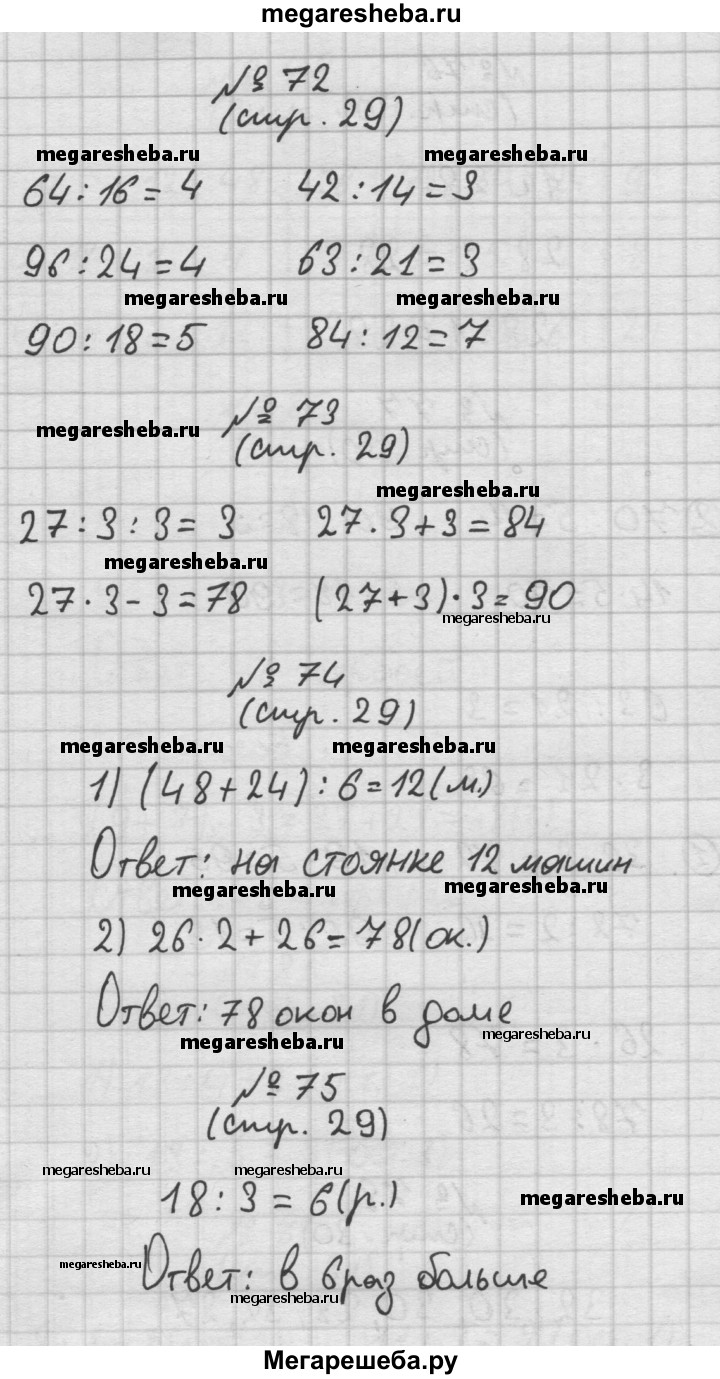 megaresheba.ru
№ 72
(стр. 29)
megaresheba.ru megaresheba.ru
64 : 16 = 4 42 : 14 = 3
96 : 24 = 4 63 : 21 = 3
megaresheba.ru megaresheba.ru
90 : 18 = 5 84 : 12 = 7
№ 73
megaresheba.ru
(стр. 29)
megaresheba.ru
27 : 3 : 3 = 3 27 · 3 + 3 = 84
megaresheba.ru
27 · 3 - 3 = 78 (27 + 3) · 3 = 90
megaresheba.ru
№ 74
(стр. 29)
megaresheba.ru megaresheba.ru
1) (48 + 24) : 6 = 12 (м.)
Ответ: на стоянке 12 машин
megaresheba.ru megaresheba.ru
2) 26 · 2 + 26 = 78 (ок.)
Ответ: 78 окон в доме
megaresheba.ru megaresheba.ru
№ 75
(стр. 29)
megaresheba.ru megaresheba.ru
18 : 3 = 6 (р.) megaresheba.ru
megaresheba.ru
Ответ: в 6 раз больше
megaresheba.ru
Мегарешеба.ру